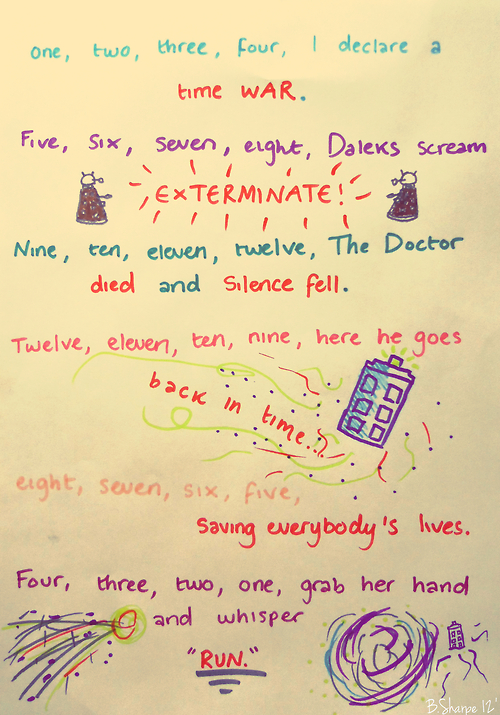 one, two, three, four, I declare a
time WAR.
Five, six, seven, eight, Daleks scream
EXTERMINATE!
Nine, ten, eleven, twelve, The Doctor
died and Silence fell.
Twelve, eleven, ten, nine, here he goes
back in time...
eight, seven, six, five,
saving everybody's lives.
Four, three, two, one, grab her hand
and whisper
"RUN."
B Sharpe 12'